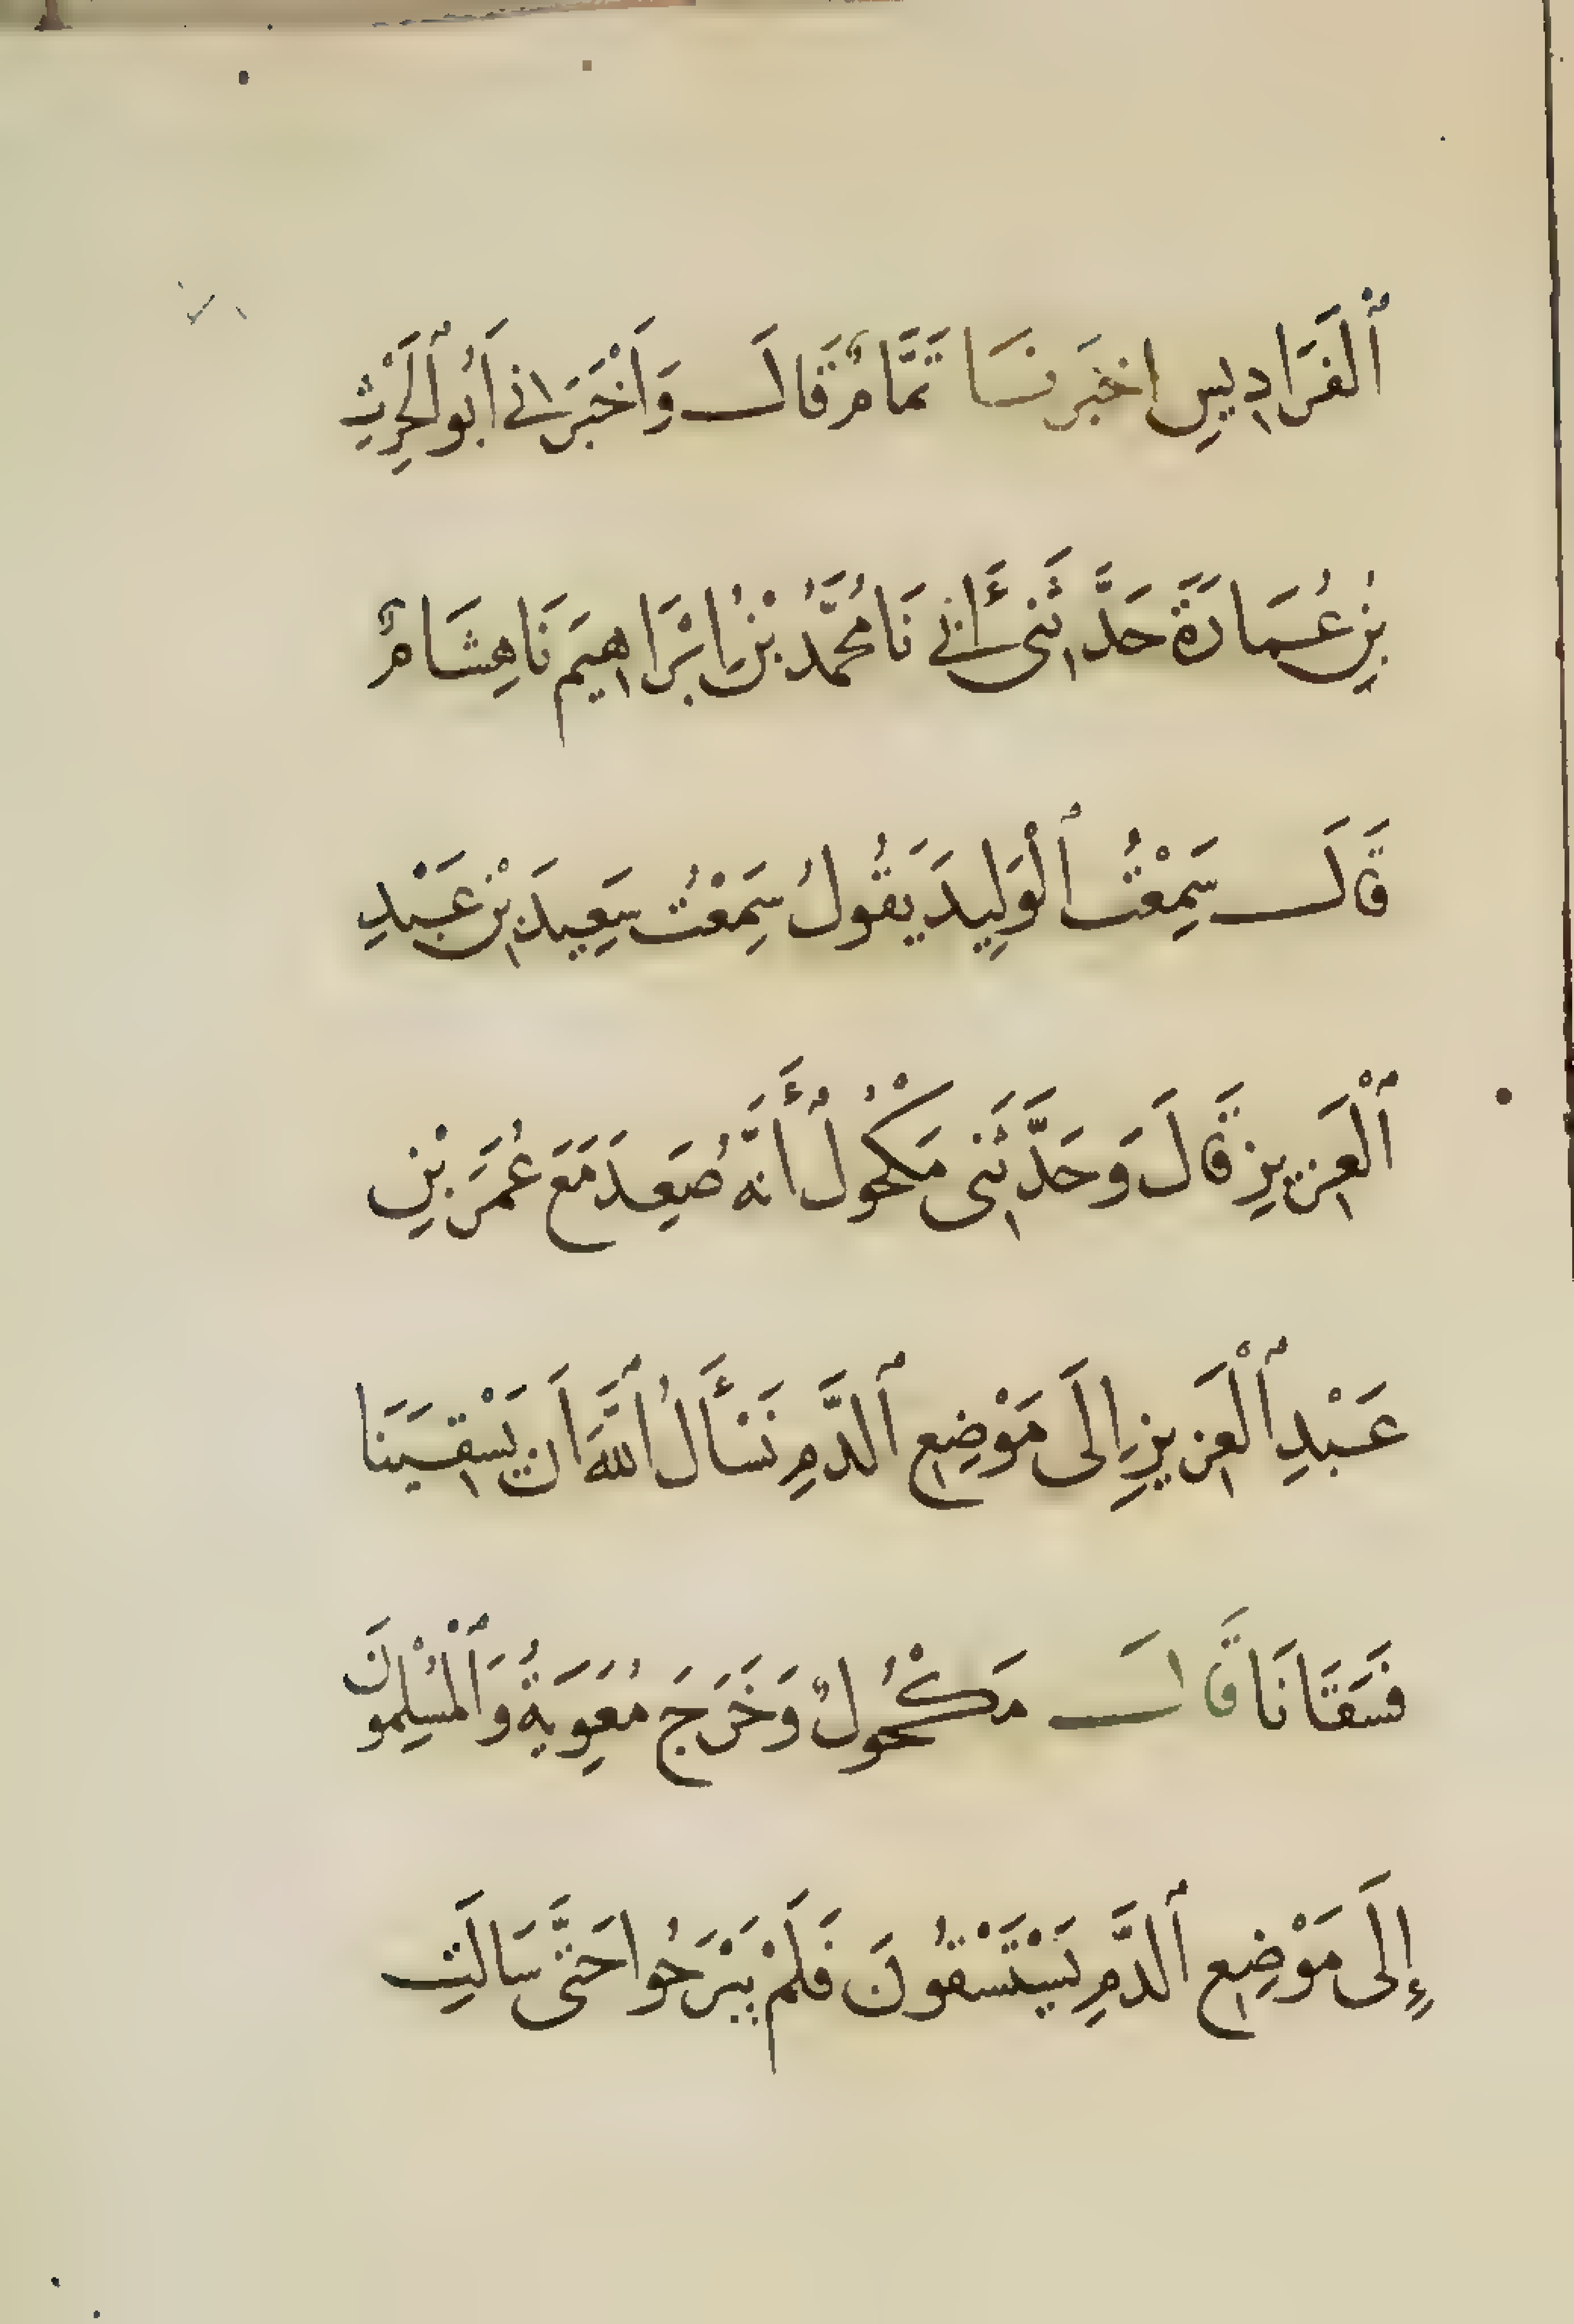 ٱلْفَرَادِيسِ اخبَرنَسَا تَمَّامٌ قَالَ وَأَخْبَرَانِي أَبُو ٱلْحَرِْثِ
بْنِ عُمَارَةَ حَدَّثَنِى أَبِي نَا مُحَمَّدُ بْنُ إِبْرَاهِيمَ نَا هِشَامٌ
قَالَ سَمِعْتُ ٱلْوَلِيدَ يَقُولُ سَمِعْتُ سَعِيدَ بْنَ عَبْدِ
ٱلْعَزِيزِ قَالَ وَحَدَّثَنِى مَكْحُولُ أَنَّهُ صَعِدَ مَعَ عُمَرَ بْنِ
عَبْدِ ٱلْعَزِيزِ إِلَى مَوْضِعِ ٱلدَّمِ نَسْأَلُ ٱللَّهَ اَن يَسْقِيَنَا
فَسَقَانَا قَالَ مَكْحُولٌ وَخَرَجَ مُعَوِيَةُ وَٱلْمُسْلِمُونَ
إِلَى مَوْضِعِ ٱلدَّمِ يَسْتَسْقُونَ فَلَمْ يَبْرَحُوا حَتَّى سَالَتِ